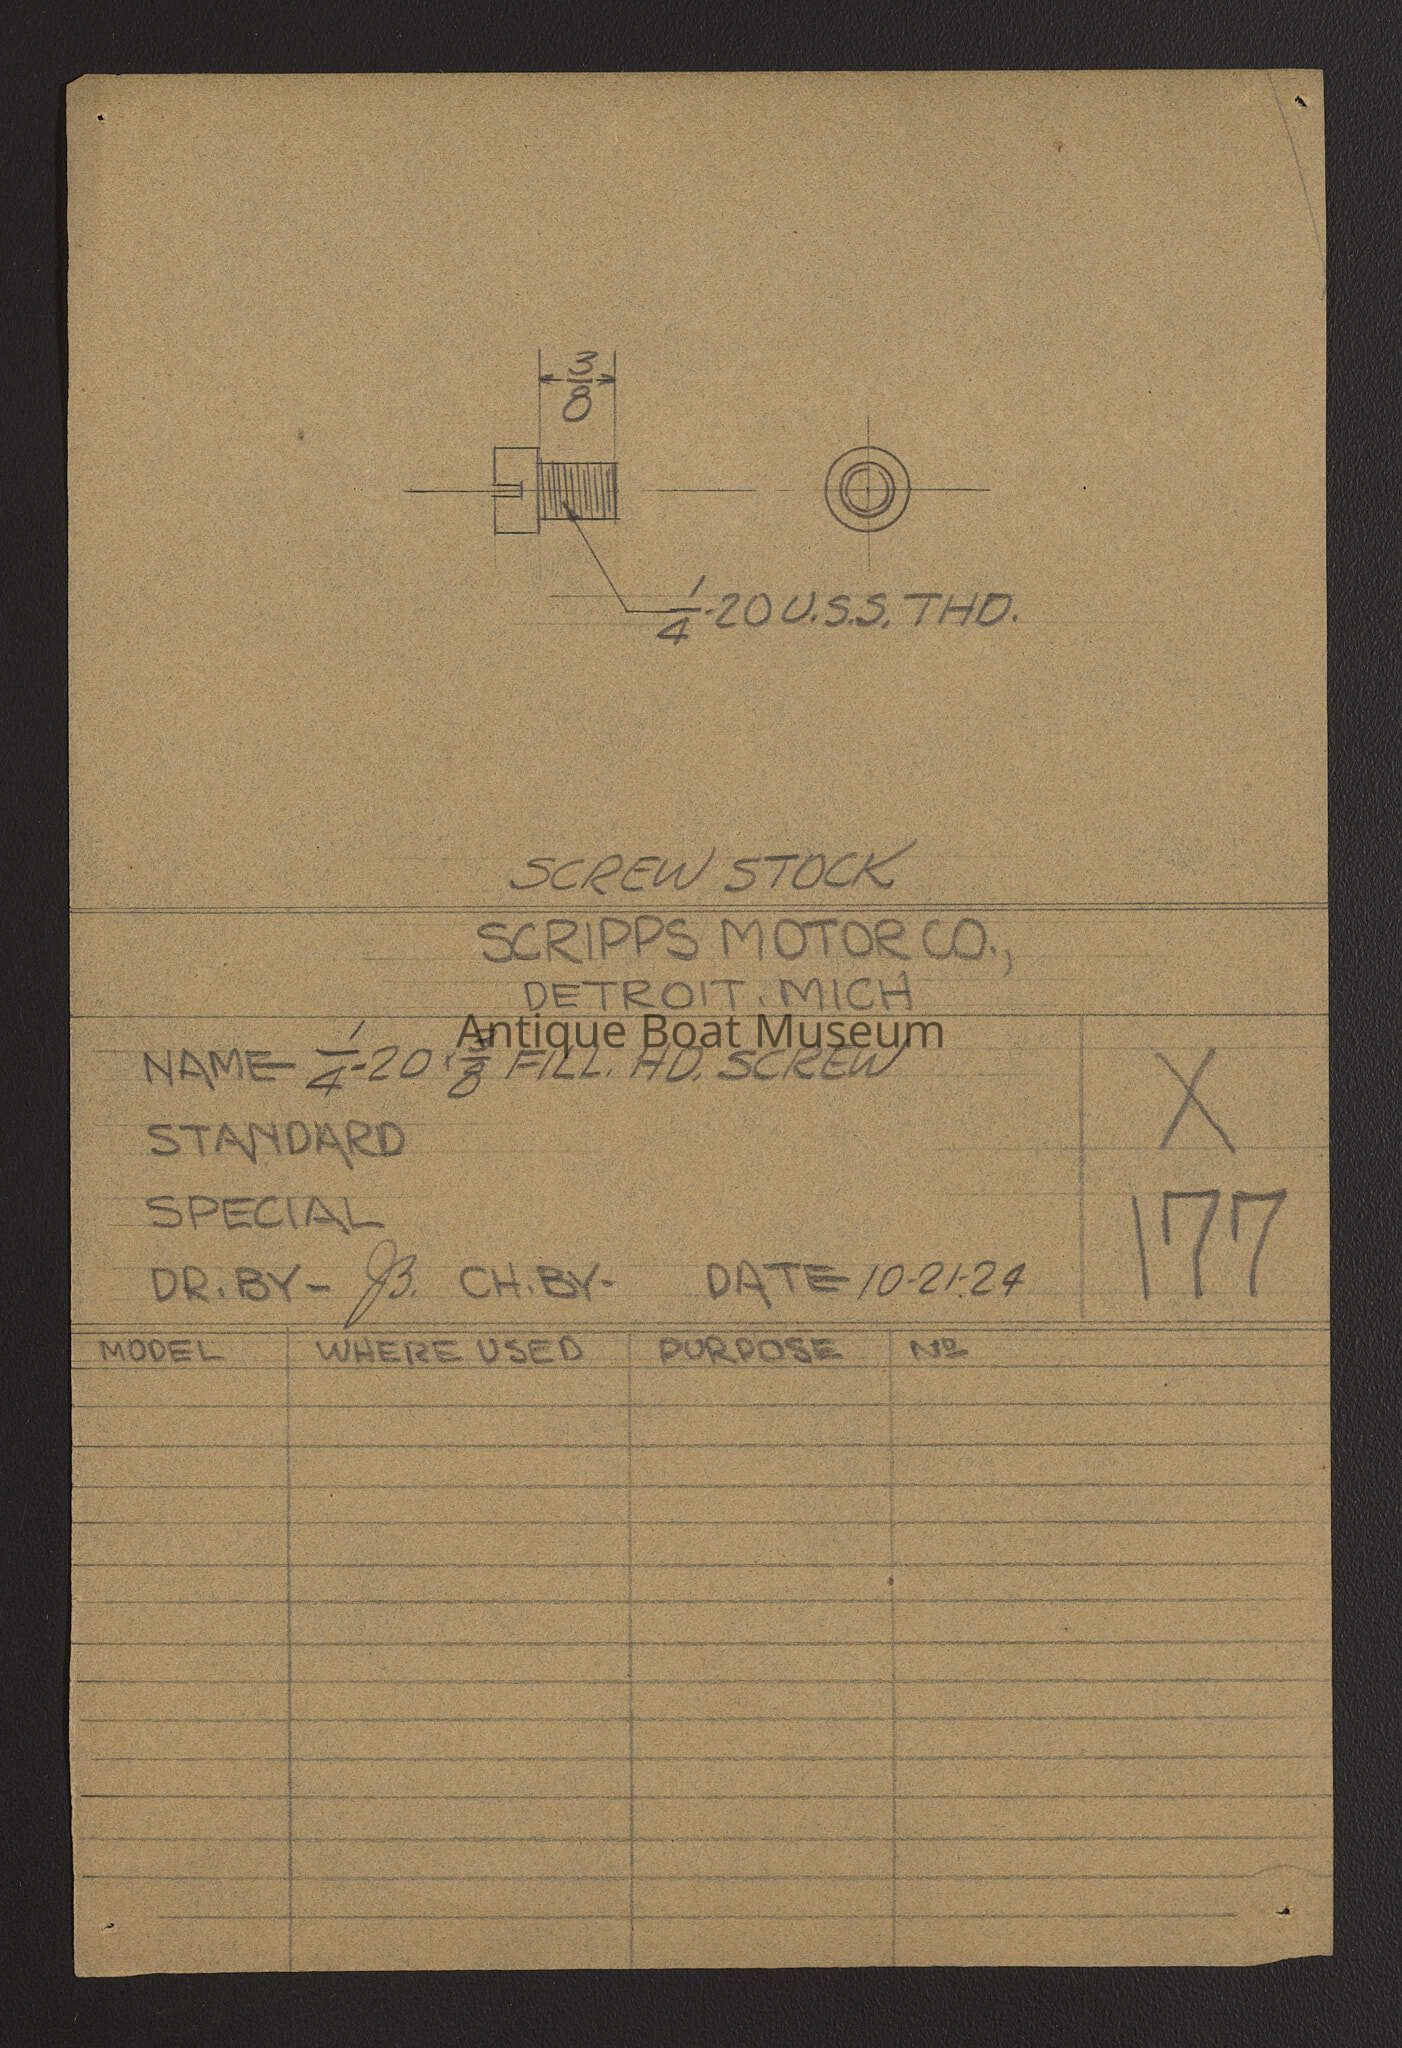 3/8
1/4-20 U.S.S. THD.
SCREW STOCK
SCRIPPS MOTOR CO.,
DETROIT. MICH
Antique Boat Museum
NAME- 1/4-20 x 3/8 FILL. HD. SCREW
X
STANDARD
SPECIAL
177
DR. BY- JB. CH. BY- DATE- 10-21-24
MODEL WHERE USED PURPOSE Nº